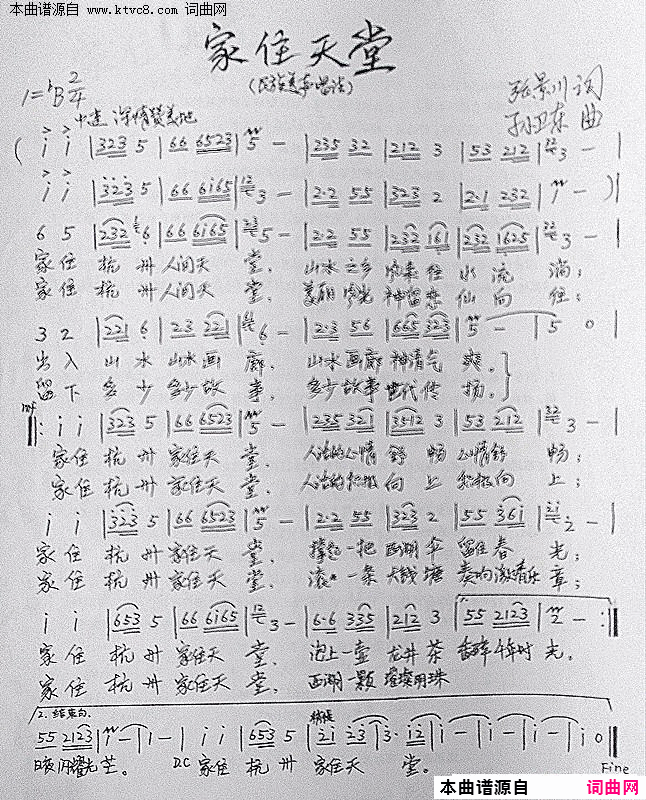 本曲谱源自
www.ktvc8.com 词曲网
家住天堂
(民族美声唱法)
1=♭B 2/4
张景川 词
中速 深情赞美地
孙卫东 曲
( i i | 323 5 | 66 6523 | 5 - | 235 32 | 212 3 | 53 212 | 3 - |
i i | 323 5 | 66 6i65 | 3 - | 2·2 55 | 323 2 | 2·1 232 | 1 - | )
6 5 | 232 6 | 66 6i65 | 5 - | 2·2 55 | 232 161 | 232 1625 | 3 - |
家住 杭州 人间天 堂, 山水之乡 水流淌;
家住 杭州 人间天 堂, 美丽 神留恋 仙向往;
3 2 | 221 6 | 2·3 221 | 6 - | 2·3 56 | 665 323 | 5 - | 5 0 |
出入 山水 山水画 廊, 山水画廊 神清气 爽。
留下 多少 多少故 事, 多少故事 世代传 扬。
mf
i i | 323 5 | 66 6523 | 5 - | 235 321 | 3512 3 | 53 212 | 3 - |
家住 杭州 家住天 堂, 人活的心情 舒畅 心情舒 畅;
家住 杭州 家住天 堂, 人活的积极 向上 积极向 上;
i i | 323 5 | 66 6523 | 5 - | 2·2 55 | 323 2 | 55 36i | 2 - |
家住 杭州 家住天 堂, 撑起一把 西湖伞 留住春 光;
家住 杭州 家住天 堂, 滚一条 大钱塘 奏响激情乐 章;
i i | 653 5 | 66 6i65 | 3 - | 6·6 335 | 212 3 | 55 2123 | 2 - :
家住 杭州 家住天 堂, 泡上一壶 龙井茶 香醉午年时 光。
家住 杭州 家住天 堂, 西湖一颗 璀璨明珠
2. 结束句.
稍慢
55 2123 | i - | i - | i i | 653 5 | 2i 23 | 3· i2 | i - | i - | i - | i 0
日夜闪耀光 芒。 D.C 家住 杭州 家住天 堂。
Fine
本曲谱源自 词曲网